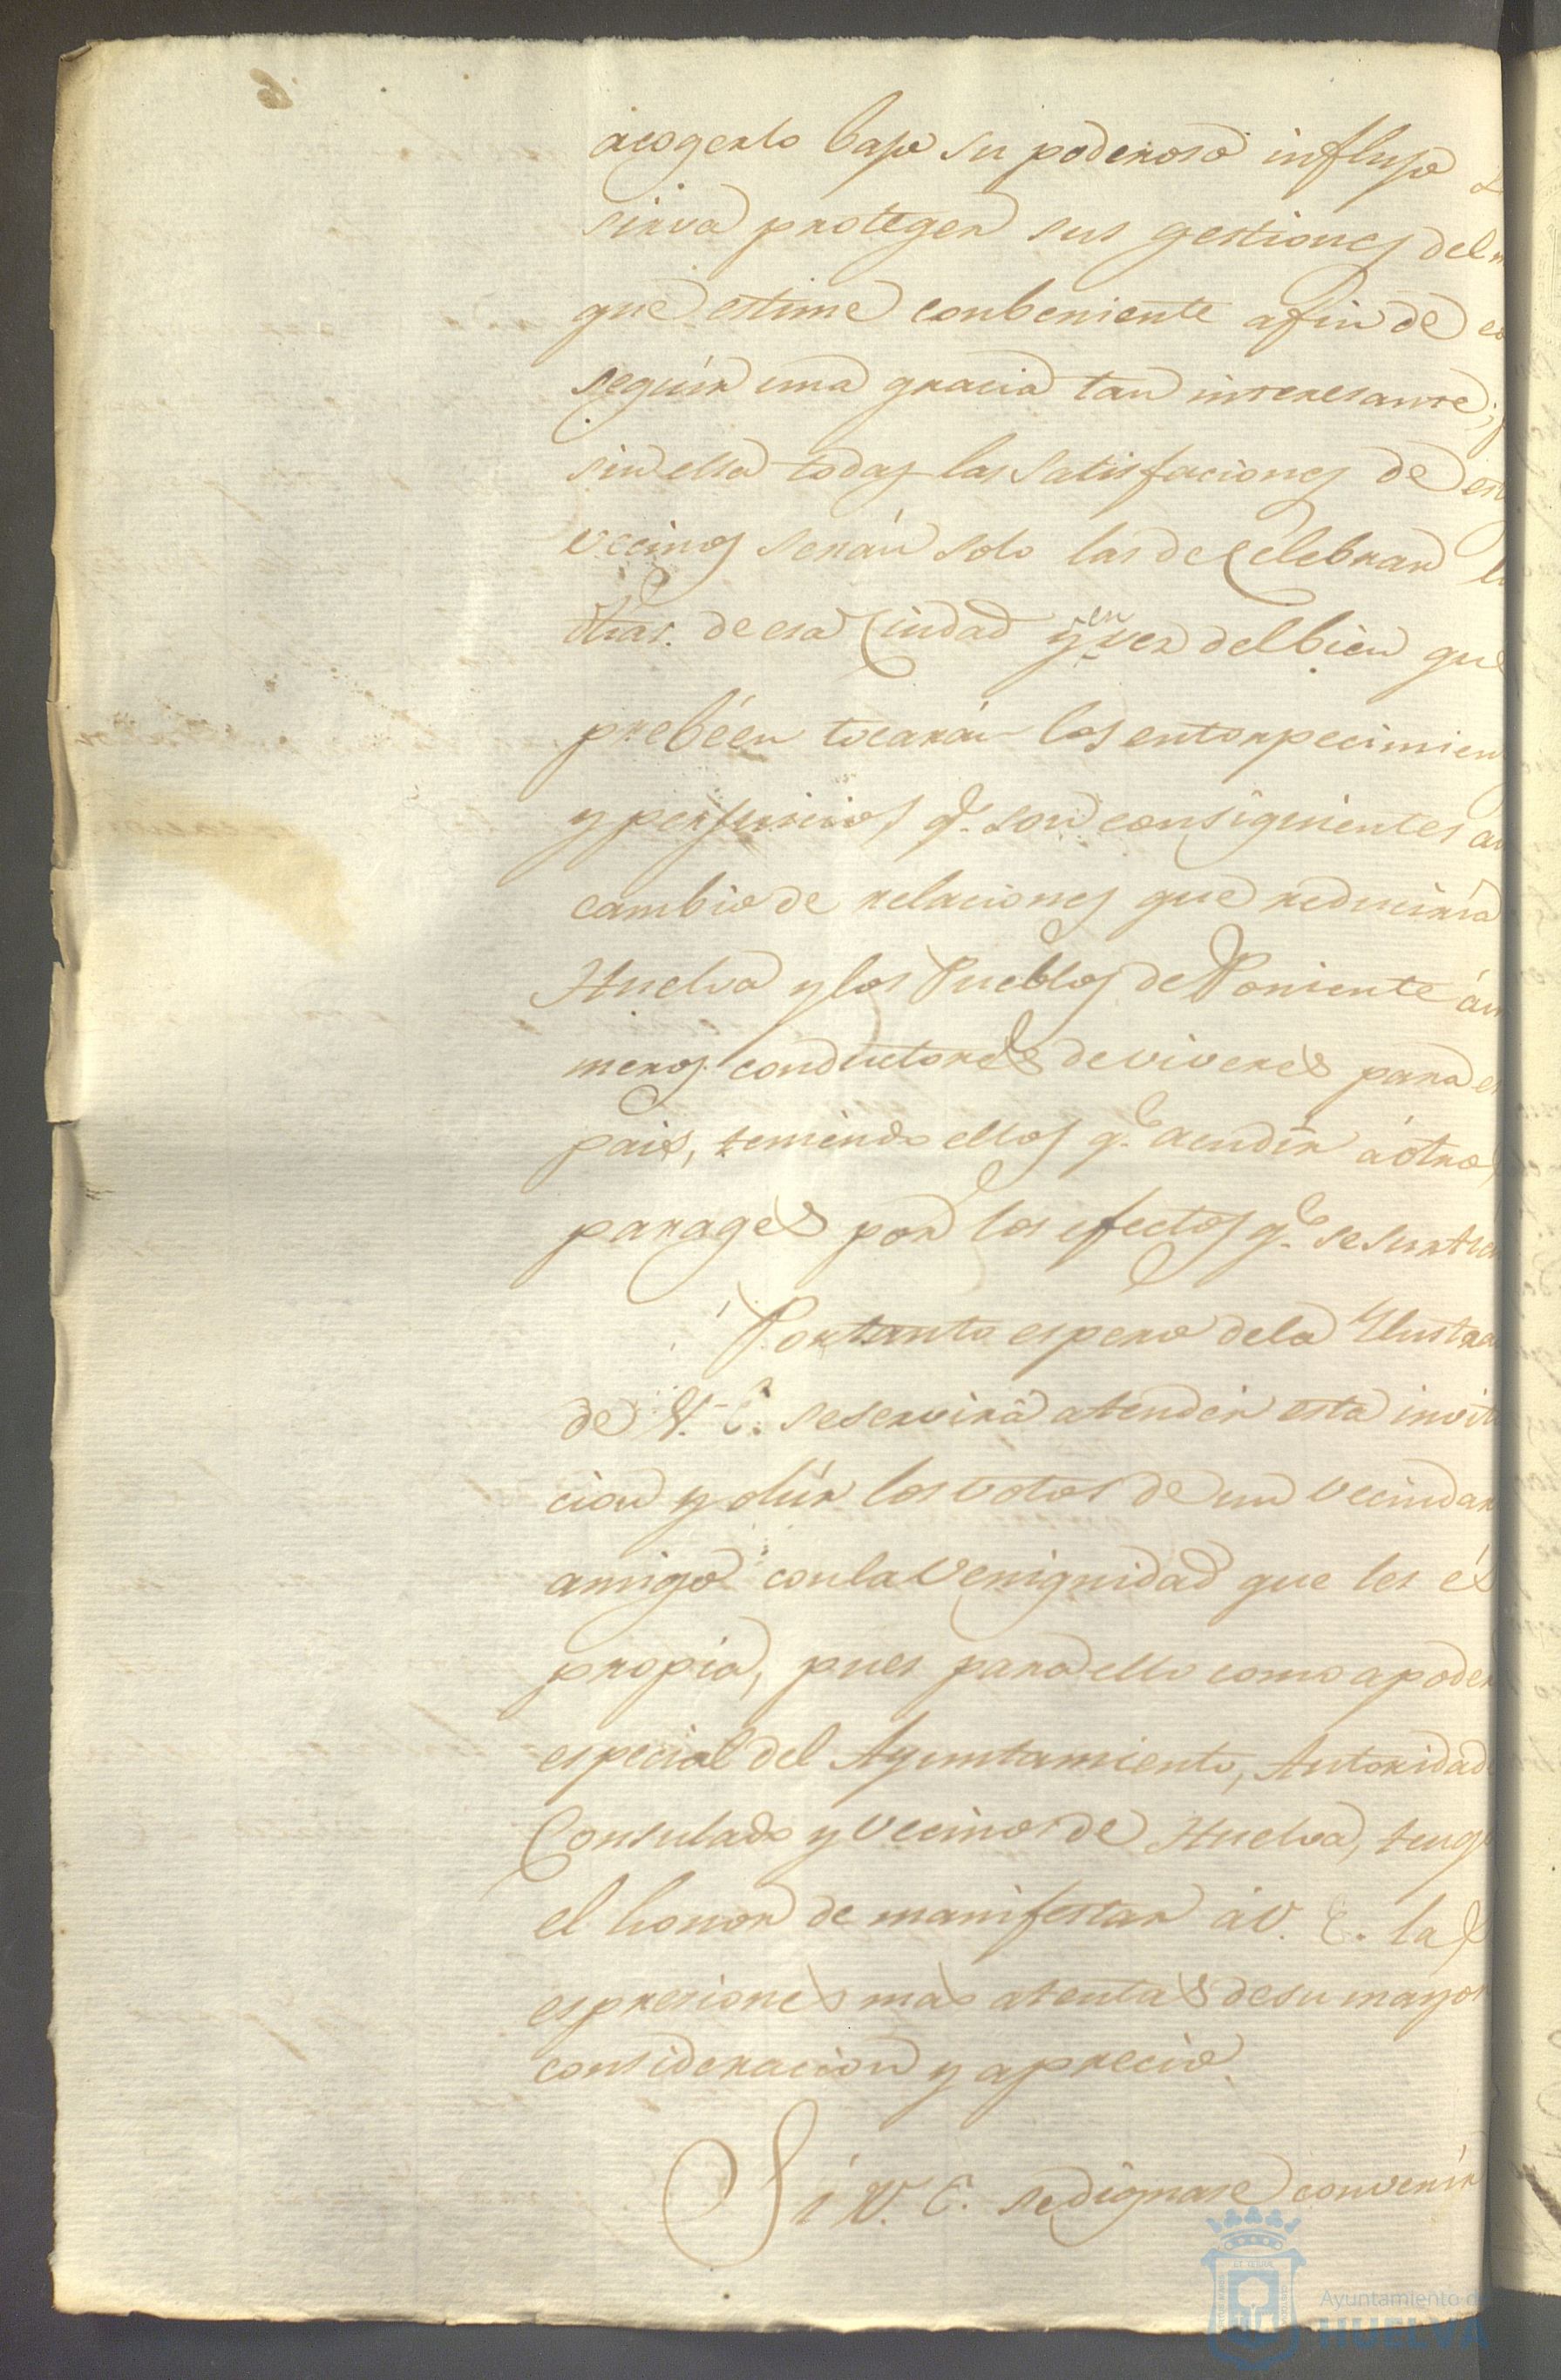 acogerlo bajo su poderoso influjo
sirva proteger sus gestiones del
que estime conbeniente afin de co
seguir una gracia tan interesante;
sin ella todas las satisfaciones de est
vecinos serán solo las de Celebrar
de esa Ciudad y en vez del bien que
prebéen tocarán los entorpecimien
y perjuicios q.e son consiguientes
cambio de relaciones que reduciria
Huelva y los Pueblos de Poniente á
meros conductores de viveres para
pais, teniendo ellos q.e acudir á otro
parages por los efectos q.e se surtien
Portanto espero dela Ilustra
de V. E. se servirá atender esta invit
cion y oír los votos de un vecindar
amigo con la Venignidad que les és
propia, pues para ello como apoder
especial del Ayuntamiento, Autoridad
Consulado y vecinos de Huelva, teng
el honor de manifestar á V. E. las
espresiones mas atentas de su mayor
consideracion y aprecio.
Si V. E. se dignase convenir
Ayuntamiento de
HUELVA